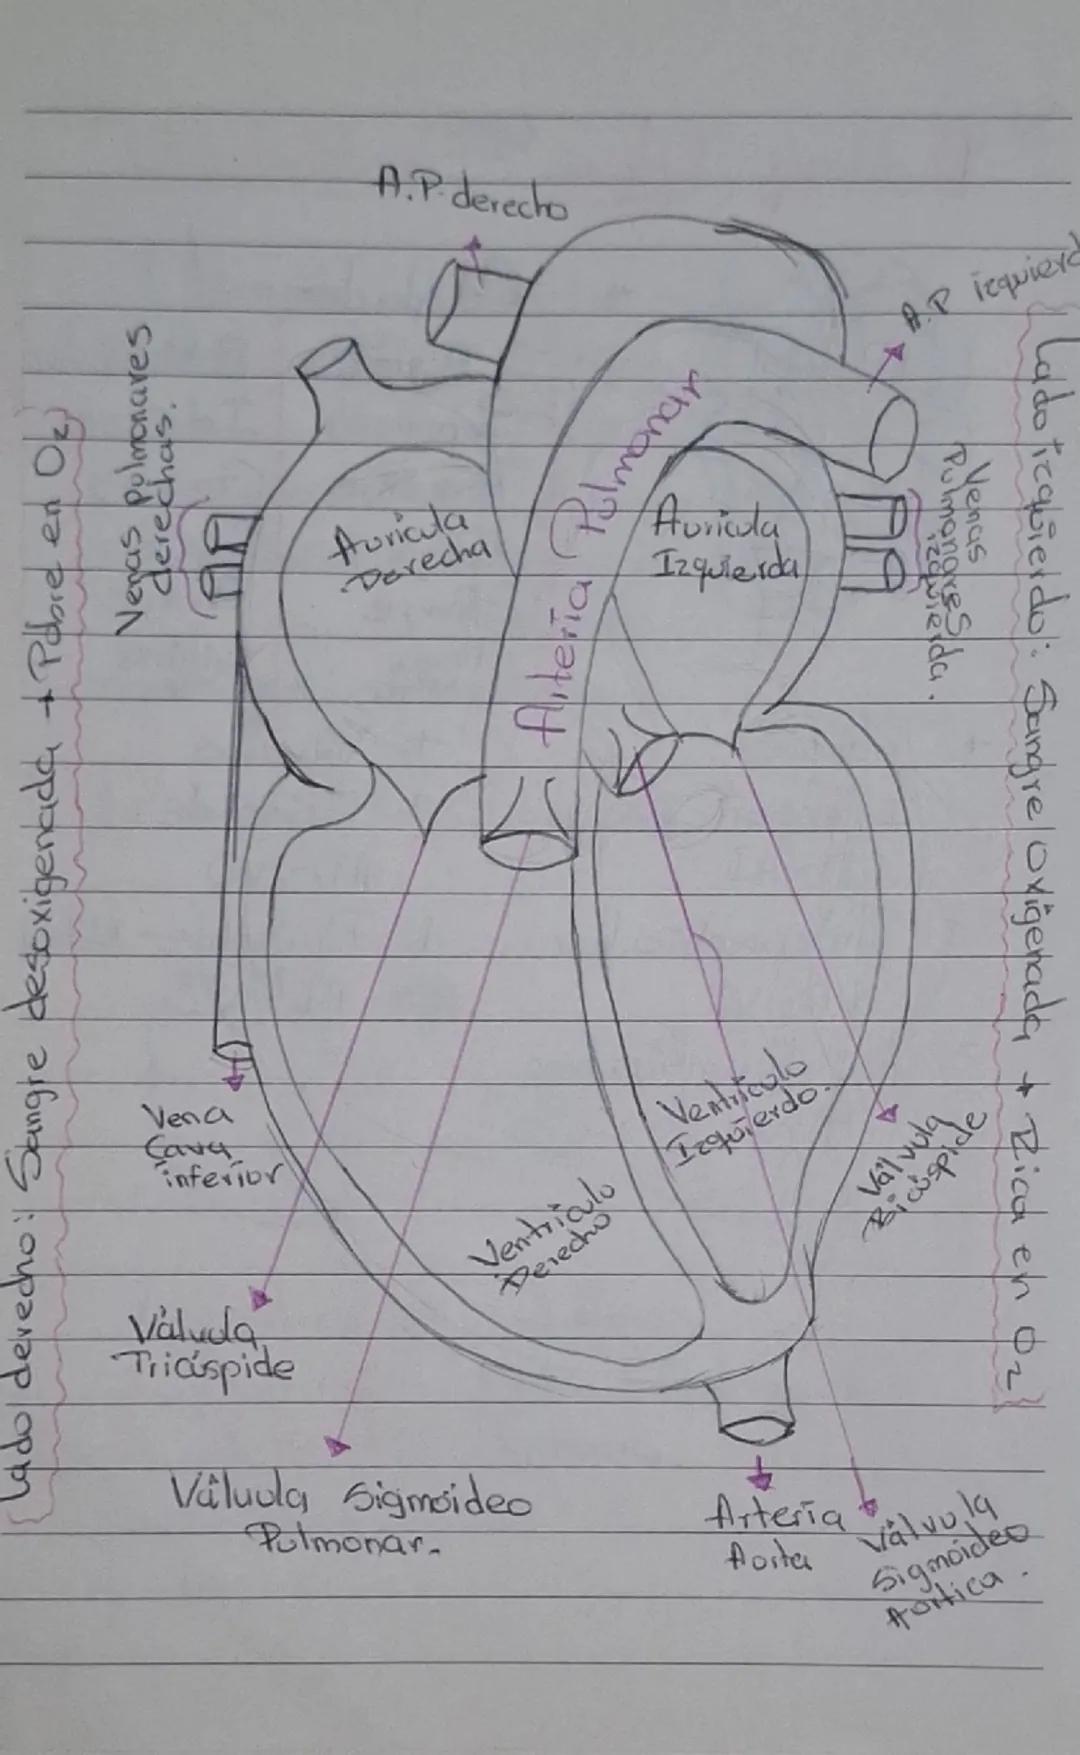 A.P. derecho
A.P izquierd
Venas Pulmonares
derechas.
Venas
Pulmonares
izquierda.
Auricula
Derecha
Arteria Pulmonar
Auricula
Izquierda
Lado derecho: Sangre desoxigenada → Pobre en O₂
Lado izquierdo: Sangre oxigenada → Rica en O₂
Vena
Cava
inferior
Ventriculo
Izquierdo.
Ventriculo
Derecho
Válvula
Bicúspide
Válvula
Tricúspide
Válvula Sigmoideo
Pulmonar.
Arteria
Aorta
Válvula
Sigmoideo
Aortica.